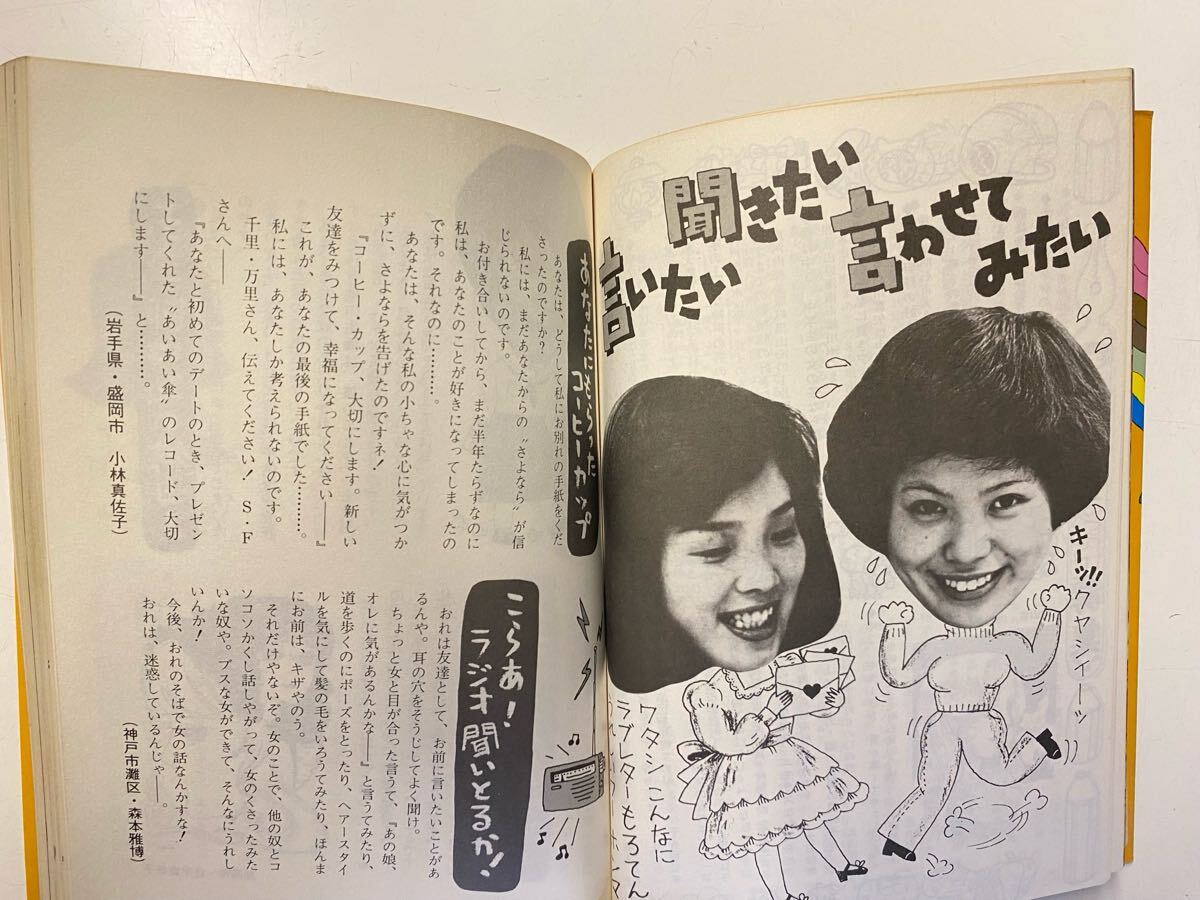 聞きたい
言わせて
みたい
言いたい
キーッ!!
クヤシイーッ
ワタシこんなに
ラブレターもろてん
あなたにもらった
コーヒーカップ
あなたは、どうして私にお別れの手紙をくだ
さったのですか?
私には、まだあなたからの〝さよなら〟が信
じられないのです。
お付き合いしてから、まだ半年たらずなのに
私は、あなたのことが好きになってしまったの
です。それなのに………。
あなたは、そんな私の小ちゃな心に気がつか
ずに、さよならを告げたのですネ!
『コーヒー・カップ、大切にします。新しい
友達をみつけて、幸福になってください――』
これが、あなたの最後の手紙でした………。
私には、あなたしか考えられないのです。
千里・万里さん、伝えてください! S・F
さんへ――
『あなたと初めてのデートのとき、プレゼン
トしてくれた〝あいあい傘〟のレコード、大切
にします――』と………。
(岩手県・盛岡市 小林真佐子)
こらあ!
ラジオ聞いとるか!
おれは友達として、お前に言いたいことがあ
るんや。耳の穴をそうじしてよく聞け。
ちょっと女と目が合った言うて、『あの娘、
オレに気があるんかな――』と言うてみたり、
道を歩くのにポーズをとったり、ヘアースタイ
ルを気にして髪の毛をいろうてみたり、ほんま
にお前は、キザやのう。
それだけやないぞ。女のことで、他の奴とコ
ソコソかくし話しやがって、女のくさったみた
いな奴や。ブスな女ができて、そんなにうれし
いんか!
今後、おれのそばで女の話なんかすな!
おれは、迷惑しているんじゃ――。
(神戸市灘区・森本雅博)